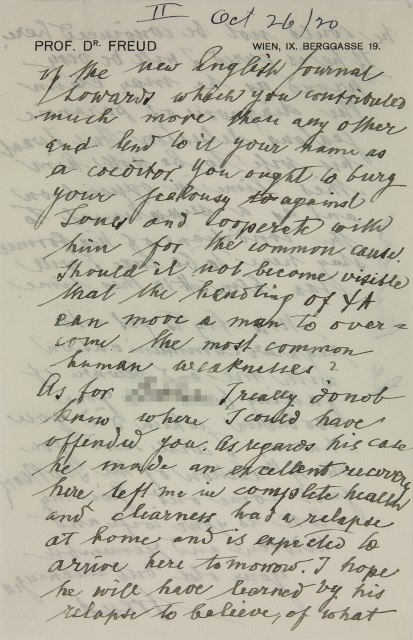 II Oct 26/20
PROF. DR. FREUD WIEN, IX. BERGGASSE 19.
of the new English Journal
towards which you contributed
much more than any other
and lend to it your name as
a coeditor. You ought to bury
your jealousy against
Jones and cooperate with
him for the common cause.
Should it not become visible
that the handling of ΨA
can move a man to over=
come the most common
human weaknesses?
As for I really do not
know where I could have
offended you. As regards his case
he made an excellent recovery
here left me in complete health
and clearness had a relapse
at home and is expected to
arrive here tomorrow. I hope
he will have learned by his
relapse to believe, of what